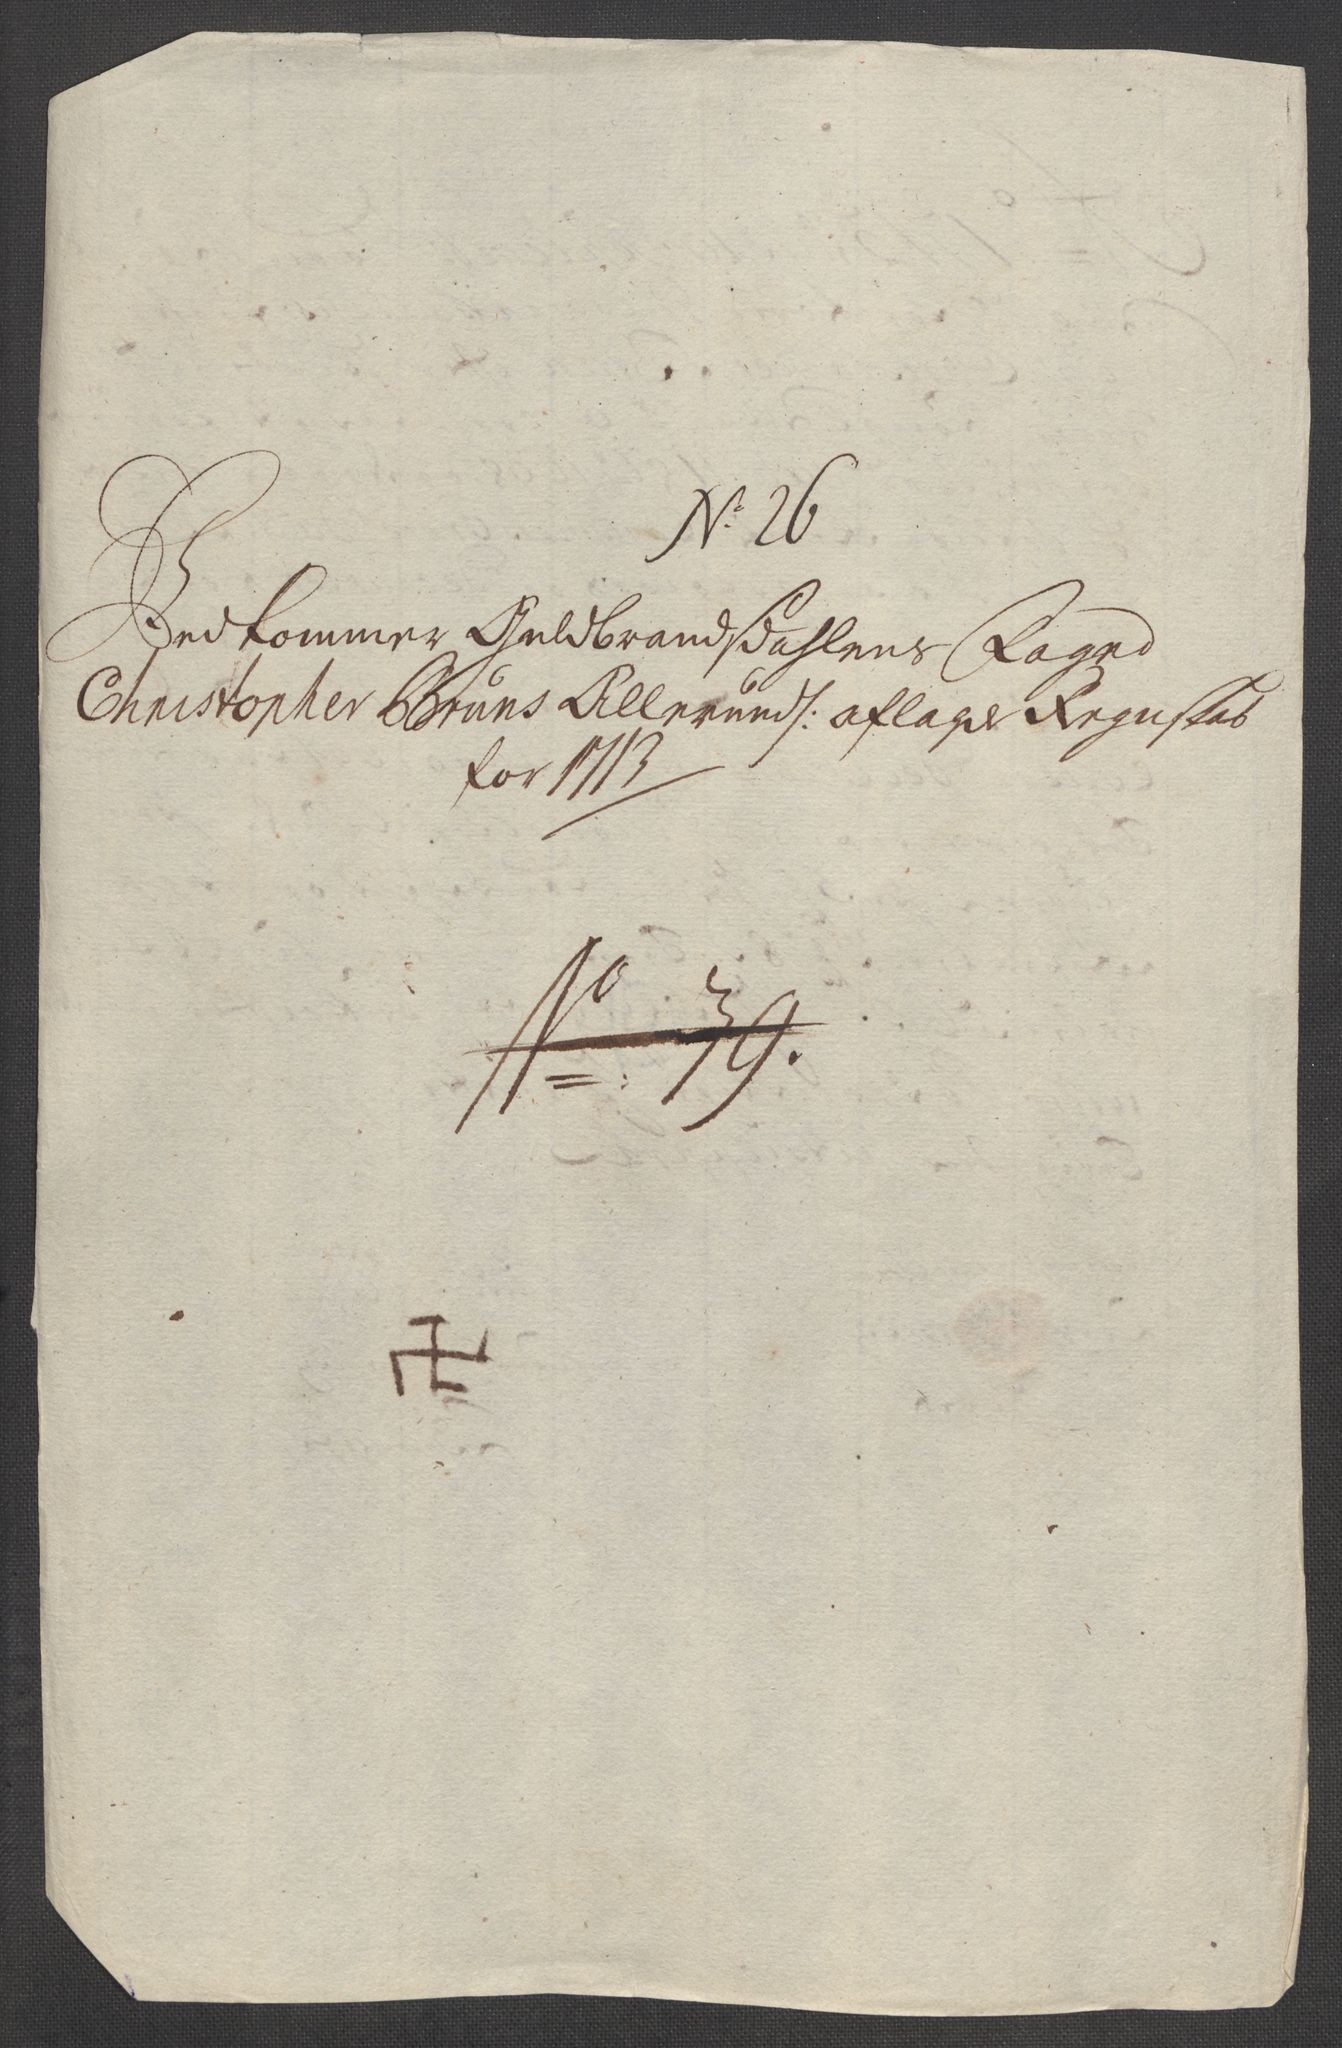 No 26
Vedkommer Guldbrandsdahlens Foged
Christopher Bruns Allerund: aflagde Regnskab
for 1713
No: 39.